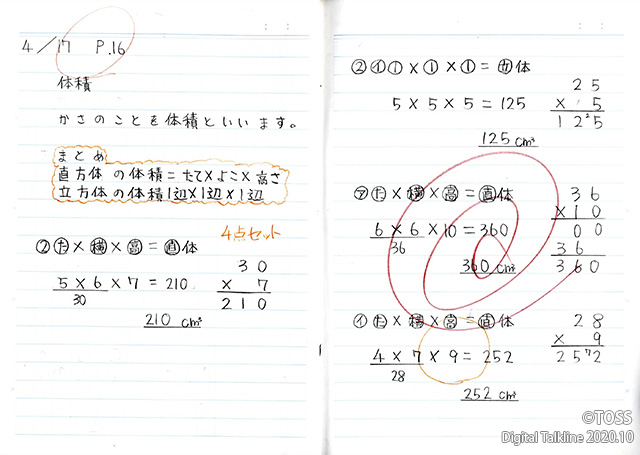 4/17 P.16
体積
かさのことを体積といいます。
まとめ
直方体の体積=たて×よこ×高さ
立方体の体積1辺×1辺×1辺
4点セット
②た×横×高=直体
5×6×7=210
30
30
×7
210
210cm³
②イ1×1×1=立体
5×5×5=125
25
×5
125
125cm³
ア た×横×高=直体
6×6×10=360
36
36
×10
00
36
360
360cm³
イ た×横×高=直体
4×7×9=252
28
28
×9
252
252cm³
©TOSS
Digital Talkline 2020.10